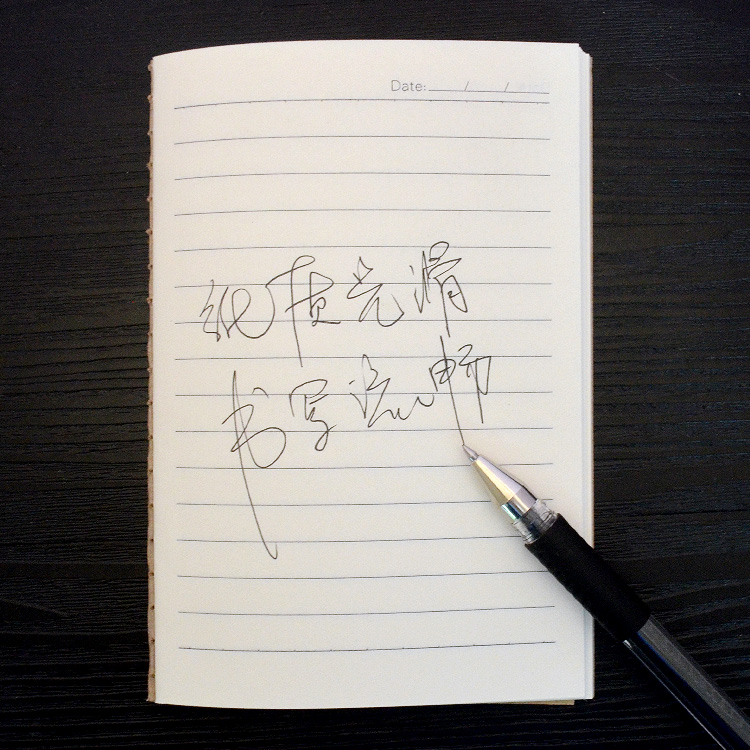 Date: / /
纸质光滑
书写流畅